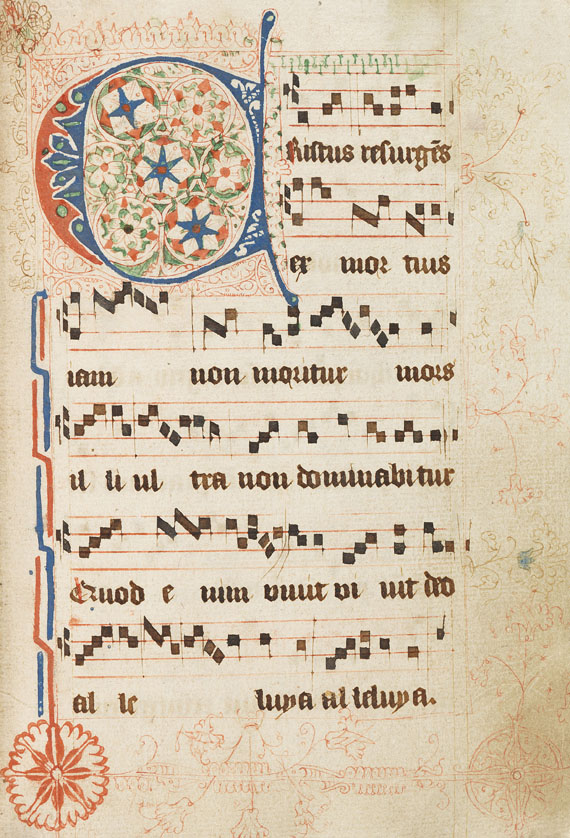 CRistus resurgẽs
ex mor tuis
iam non moritur mors
il li ul tra non dominabitur
Quod e nim viuit vi uit deo
al le luya alleluya.